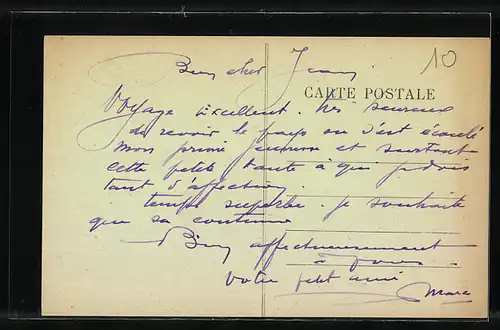 Bien cher Jean
10
CARTE POSTALE
Voyage Excellent. très heureux
de revoir le pays où s'est écoulé
mon jeune et surtout
cette petite tante à qui je dois
tant d'affection
temps superbe. je souhaite
que sa continue
Bien affectueusement
à vous
Votre petit ami
Marc